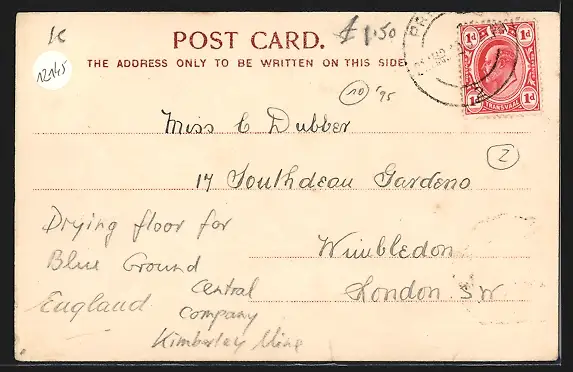 1c
12145
POST CARD.
THE ADDRESS ONLY TO BE WRITTEN ON THIS SIDE.
£ 1.50
10 '95
1d 1d
1d 1d
TRANSVAAL
2
Miss C Dubber
17 Southdean Gardens
Wimbledon
London S W
Drying floor for
Blue Ground
England
Central
Company
Kimberley Mine